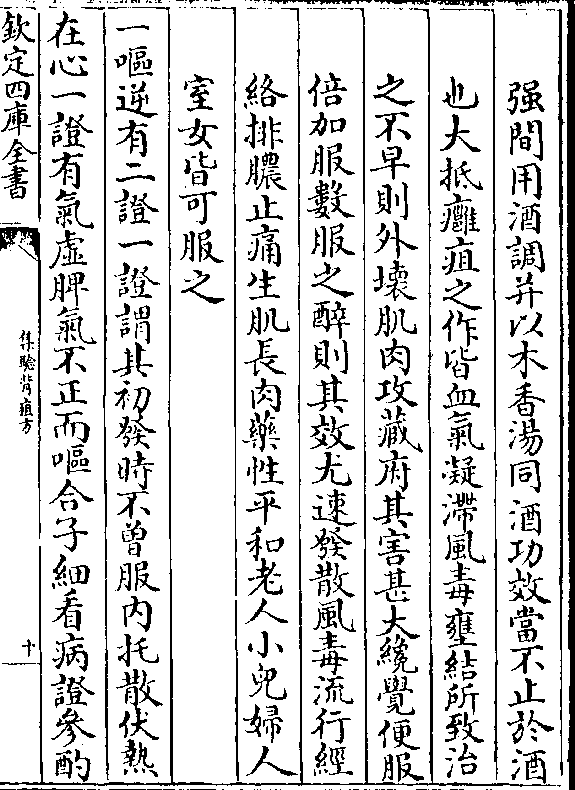 强間用酒調并以木香湯同酒功效當不止於酒
也大抵癰疽之作皆血氣凝滯風毒壅結所致治
之不早則外壞肌肉攻藏府其害甚大纔覺便服
倍加服數服之醉則其效尤速發散風毒流行經
絡排膿止痛生肌長肉藥性平和老人小兒婦人
室女皆可服之
一嘔逆有二證一證謂其初發時不曾服内托散伏熱
在心一證有氣虛脾氣不正而嘔合子細看病證參酌
欽定四庫全書
集驗背疽方
十